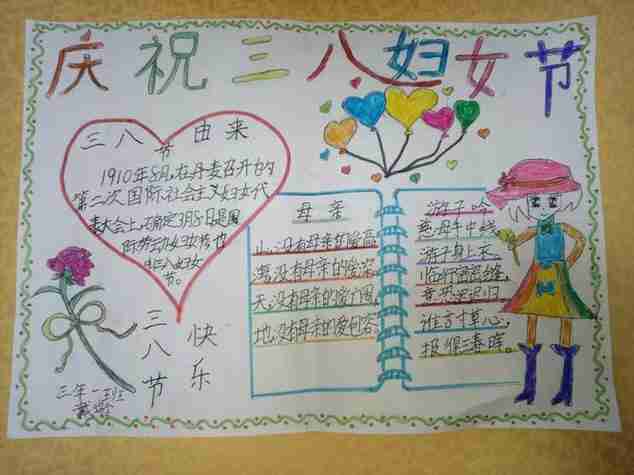 庆祝三八妇女节
三八节由来
1910年8月,在丹麦召开的
第二次国际社会主义妇女代
表大会上,确定3月8日是国
际劳动妇女节,也
叫三八妇女
节。
三八节
快乐
三年一班
母亲
山,没有母亲的恩高,
海,没有母亲的恩深,
天,没有母亲的恩广阔,
地,没有母亲的爱包容。
游子吟
慈母手中线,
游子身上衣。
临行密密缝,
意恐迟迟归。
谁言寸草心,
报得三春晖。